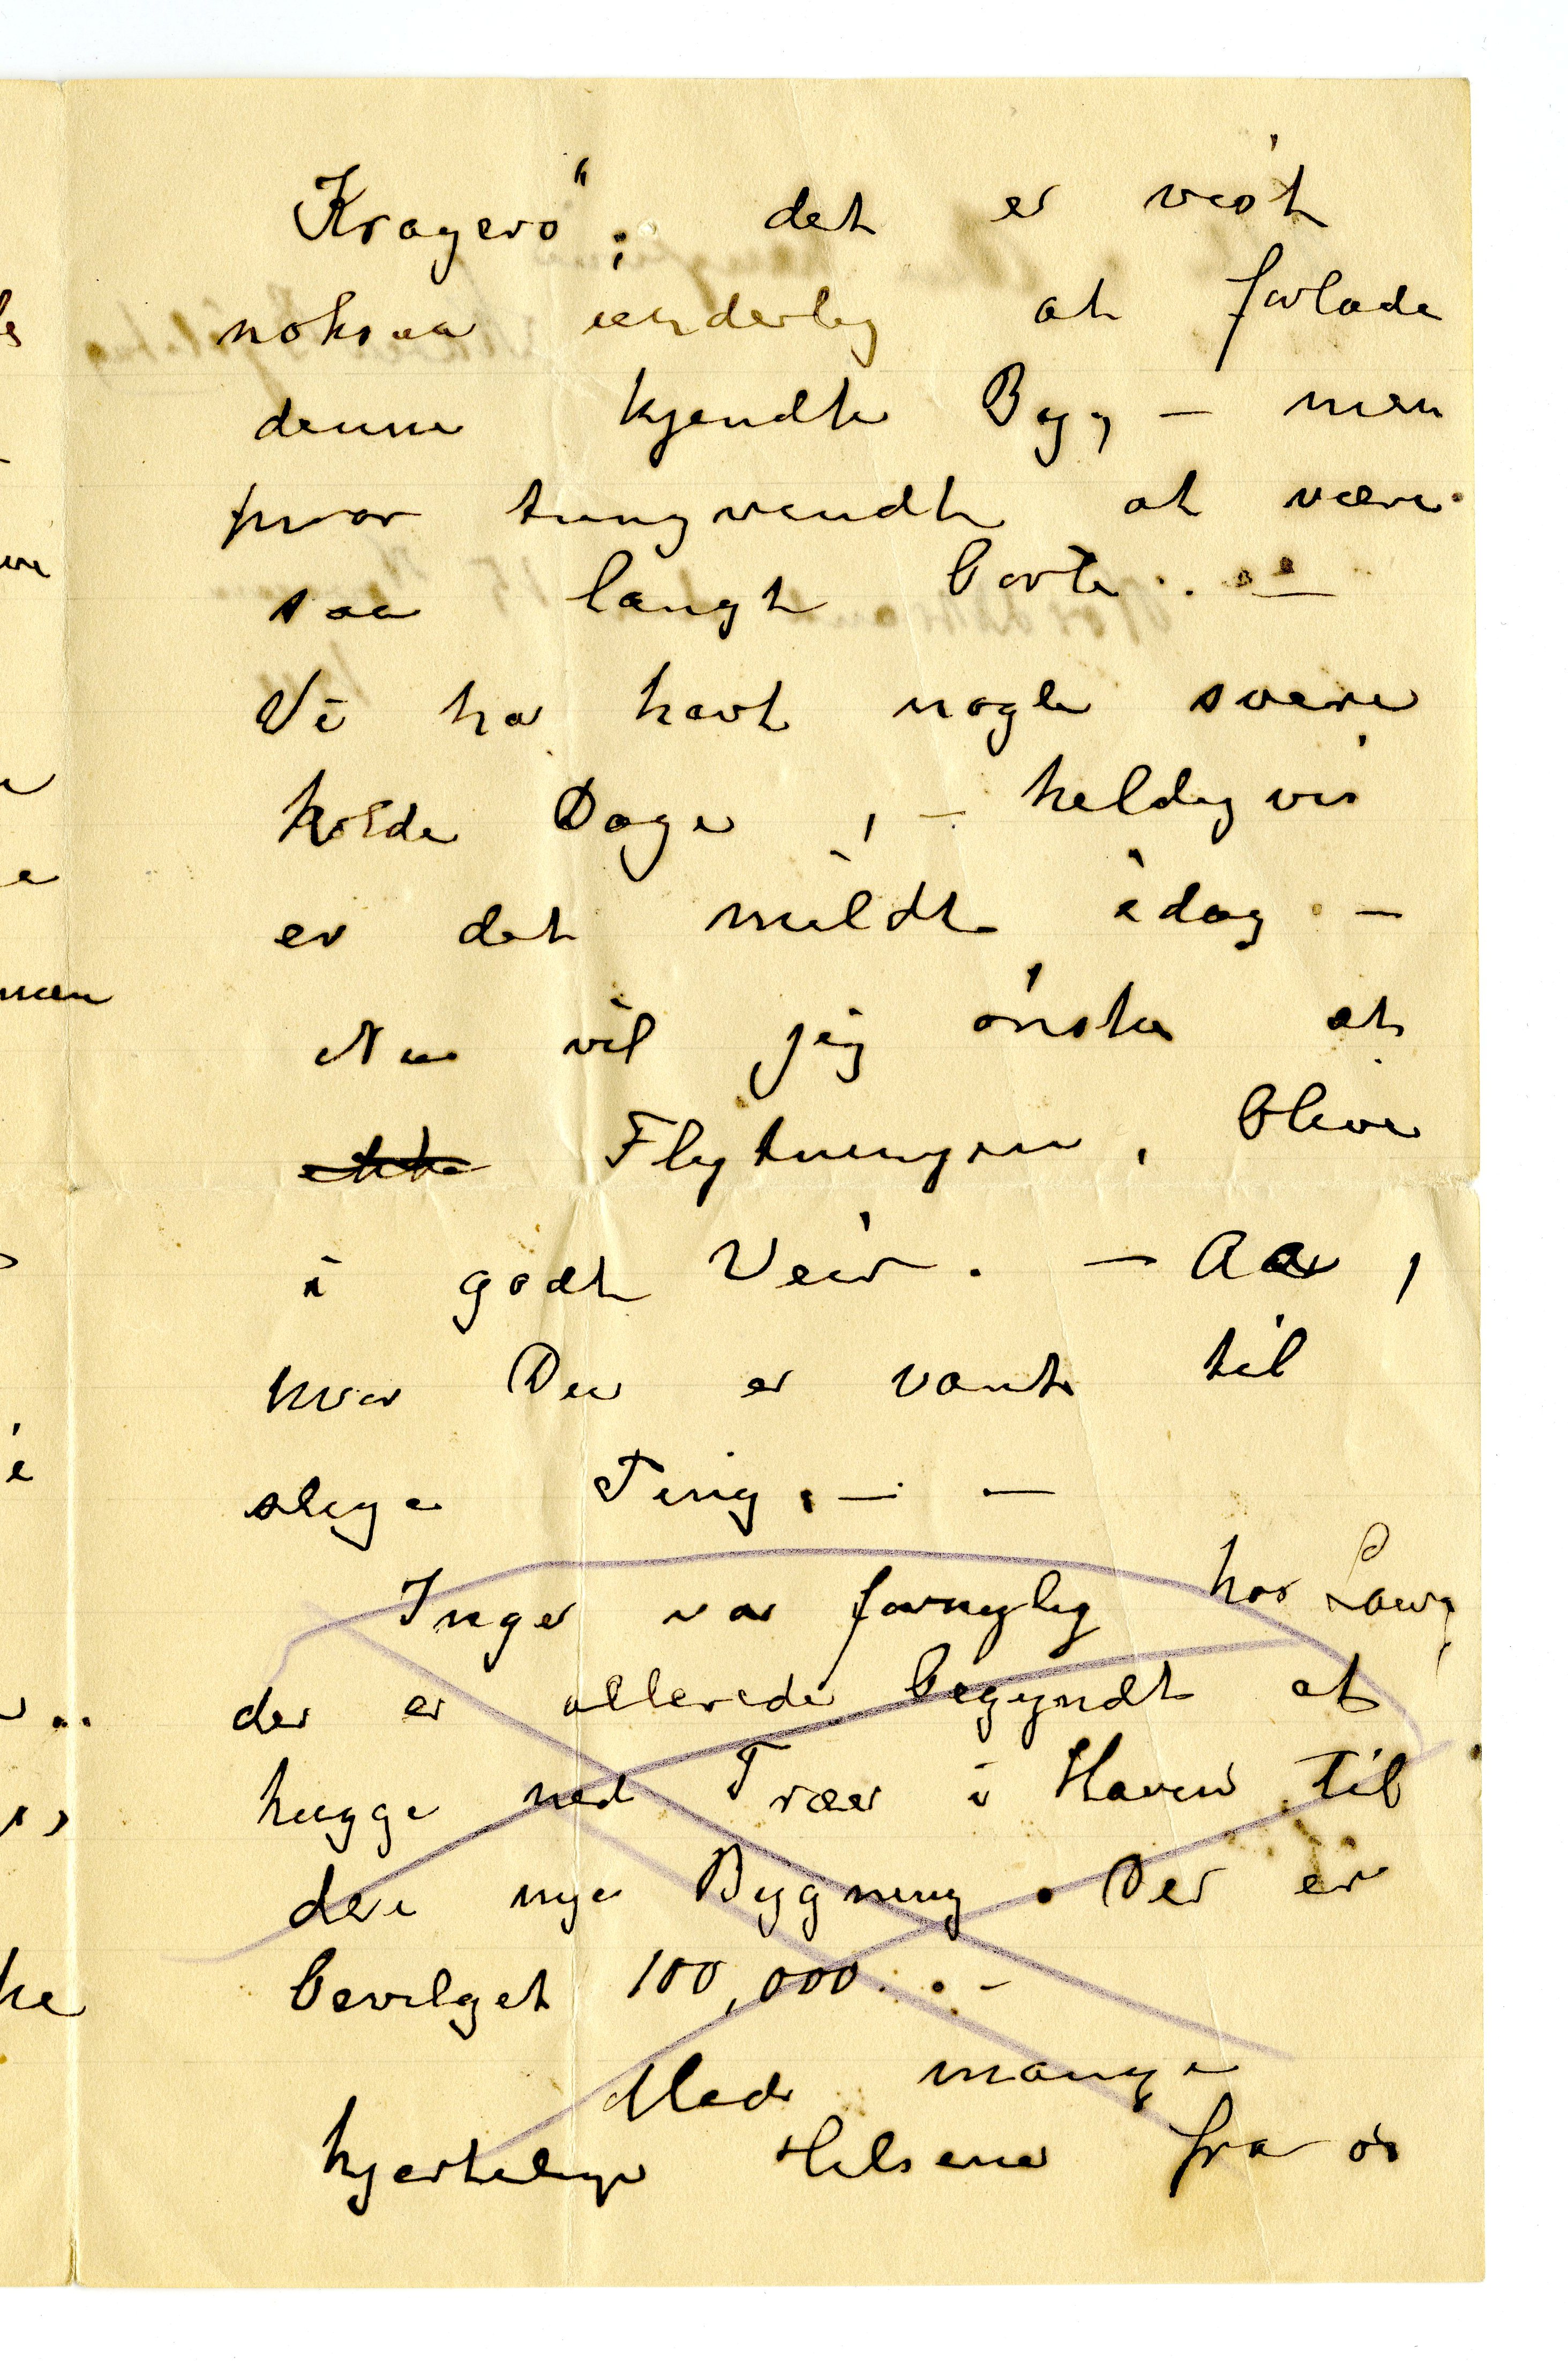 Kragerø"; det er vist
noksaa underlig at forlade
denne kjendte By, — men
hvor tungvendt at være
saa langt borte. —
Vi ha havt nogle svære
kolde Dage, — heldigvis
er det mildt idag. —
Nu vil jeg ønske at
ikke Flytningen, blive
i godt Veir. — Aa,
hvor Du er vant til
slige Ting. — —
Inger var fornylig hos Lawg,
der er allerede begyndt at
hugge ned Træer i Haven til
den nye Bygning. Der er
bevilget 100,000. . —
Med mange
hjertelige Hilsener fra os